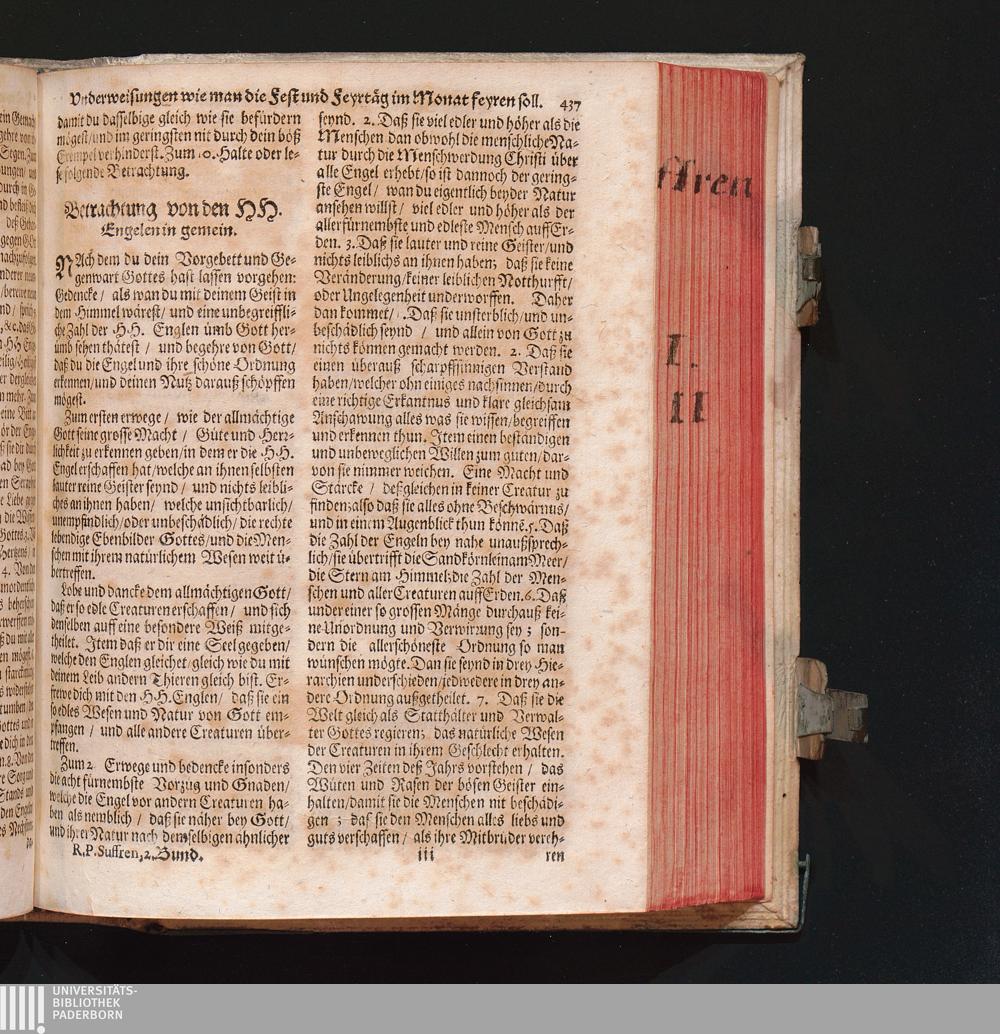 Vnderweisungen wie man die Fest und Feyrtäg im Monat feyren soll. 437
damit du dasselbige gleich wie sie befürdern
mögest/und im geringsten nit durch dein böß
Exempel verhinderst. Zum 10. Halte oder le-
se folgende Betrachtung.
Betrachtung von den HH.
Engelen in gemein.
NAch dem du dein Vorgebett und Ge-
genwart Gottes hast lassen vorgehen:
Gedencke / als wan du mit deinem Geist in
dem Himmel wärest/ und eine unbegreiffli-
che Zahl der H.H. Englen umb Gott her-
umb sehen thätest / und begehre von Gott/
daß du die Engel und ihre schöne Ordnung
erkennen/und deinen Nutz darauß schöpffen
mögest.
Zum ersten erwege / wie der allmächtige
Gott seine grosse Macht / Güte und Herr-
lichkeit zu erkennen geben/in dem er die H.H.
Engel erschaffen hat/welche an ihnen selbsten
lauter reine Geister seynd / und nichts leibli-
ches an ihnen haben/ welche unsichtbarlich/
unempfindlich/oder unbeschädlich/ die rechte
lebendige Ebenbilder Gottes/und die Men-
schen mit ihrem natürlichem Wesen weit ü-
bertreffen.
Lobe und dancke dem allmächtigen Gott/
daß er so edle Creaturen erschaffen/ und sich
denselben auff eine besondere Weiß mitge-
theilet. Item daß er dir eine Seel gegeben/
welche den Englen gleichet/ gleich wie du mit
deinem Leib andern Thieren gleich bist. Er-
frewe dich mit den HH. Englen/ daß sie ein
so edles Wesen und Natur von Gott em-
pfangen / und alle andere Creaturen über-
treffen.
Zum 2 Erwege und bedencke insonders
die acht fürnembste Vorzug und Gnaden/
welche die Engel vor andern Creaturen ha-
ben als nemblich / daß sie näher bey Gott/
und ihrer Natur nach demselbigen ähnlicher
R.P. Suffren, 2. Bund.
seynd. 2. Daß sie viel edler und höher als die
Menschen dan obwohl die menschliche Na-
tur durch die Menschwerdung Christi über
alle Engel erhebt/so ist dannoch der gering-
ste Engel / wan du eigentlich beyder Natur
ansehen willst / viel edler und höher als der
allerfürnembste und edleste Mensch auff Er-
den. 3. Daß sie lauter und reine Geister/und
nichts leiblichs an ihnen haben; daß sie keine
Veränderung/keiner leiblichen Notthurfft/
oder Ungelegenheit underworffen. Daher
dan kommet/ . Daß sie unsterblich/ und un-
beschädlich seynd / und allein von Gott zu
nichts können gemacht werden. 2. Daß sie
einen überauß scharpffsinnigen Verstand
haben/welcher ohn einiges nachsinnen/durch
eine richtige Erkantnus und klare gleichsam
Anschawung alles was sie wissen/begreiffen
und erkennen thun. Item einen beständigen
und unbeweglichen Willen zum guten/dar-
von sie nimmer weichen. Eine Macht und
Stärcke / deßgleichen in keiner Creatur zu
finden: also daß sie alles ohne Beschwärnus/
und in einem Augenblick thun könnē. 5. Daß
die Zahl der Engeln bey nahe unaußsprech-
lich/sie übertrifft die Sandkörnlein am Meer/
die Stern am Himmel: die Zahl der Men-
schen und aller Creaturen auff Erden. 6. Daß
under einer so grossen Mänge durchauß kei-
ne Unordnung und Verwirrung sey; son-
dern die allerschöneste Ordnung so man
wünschen mögte. Dan sie seynd in drey Hie-
rarchien underschieden/jedwedere in drey an-
dere Ordnung außgetheilet. 7. Daß sie die
Welt gleich als Statthälter und Verwal-
ter Gottes regieren; das natürliche Wesen
der Creaturen in ihrem Geschlecht erhalten.
Den vier Zeiten deß Jahrs vorstehen / das
Wüten und Rasen der bösen Geister ein-
halten/damit sie die Menschen nit beschädi-
gen ; daß sie den Menschen alles liebs und
guts verschaffen / als ihre Mitbrüder vereh-
iii ren
ffren
I.
II
UNIVERSITÄTS-
BIBLIOTHEK
PADERBORN